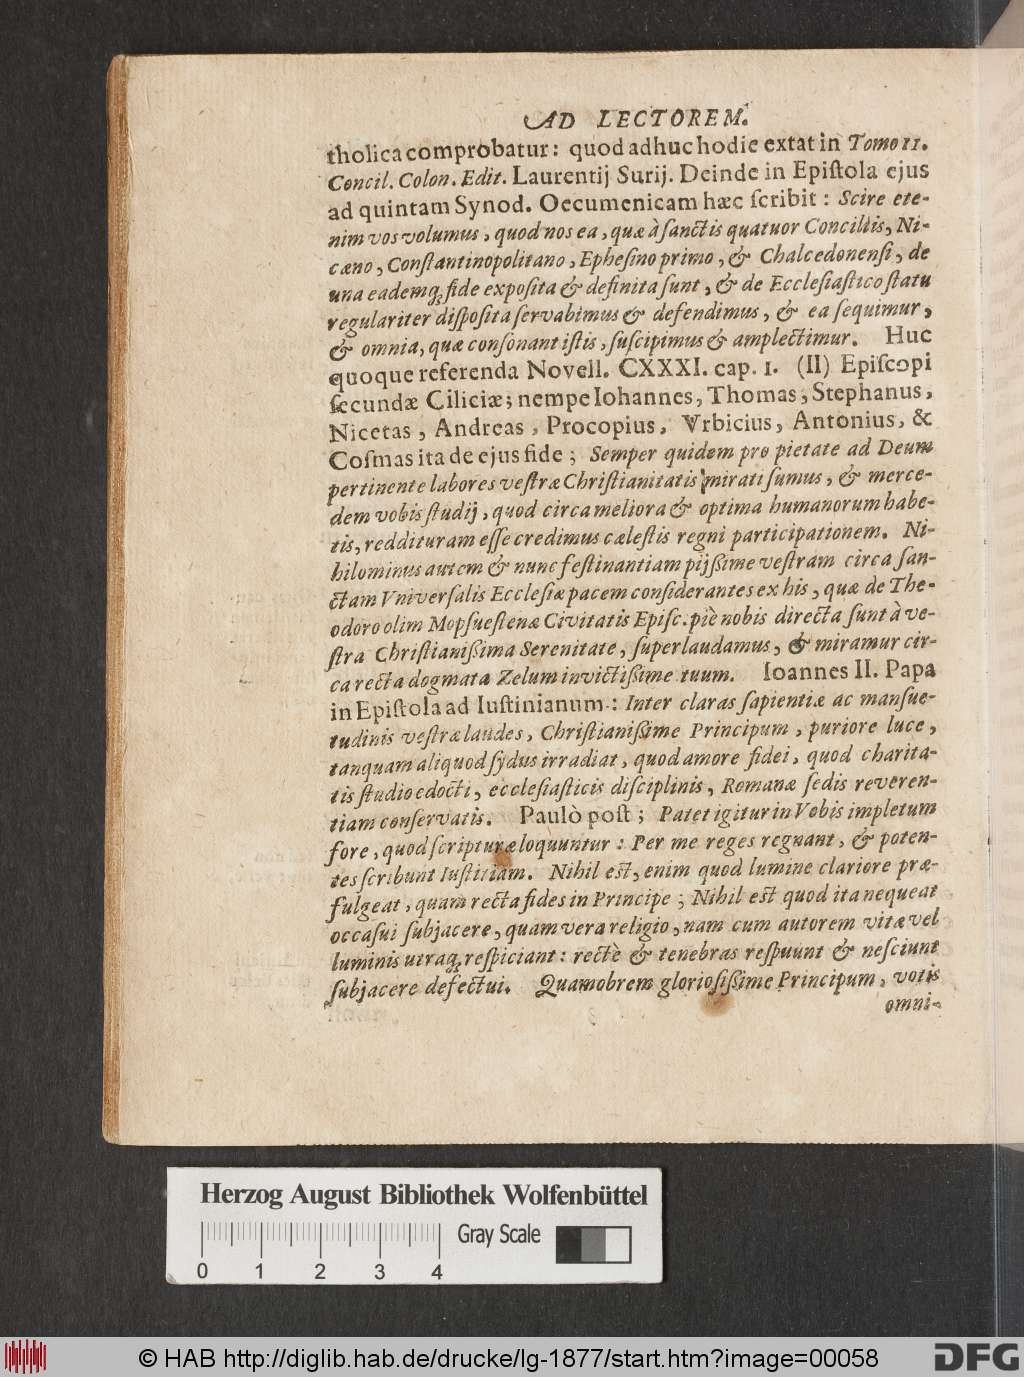 AD LECTOREM.
tholica comprobatur: quod adhuc hodie extat in Tomo II.
Concil. Colon. Edit. Laurentij Surij. Deinde in Epiſtola ejus
ad quintam Synod. Oecumenicam hæc ſcribit: Scire ete-
nim vos volumus, quod nos ea, quæ à ſanctis quatuor Conciliis, Ni-
cæno, Conſtantinopolitano, Epheſino primo, & Chalcedonenſi, de
una eademq; fide expoſita & definita ſunt, & de Eccleſiaſtico ſtatu
regulariter diſpoſita ſervabimus & defendimus, & ea ſequimur,
& omnia, quæ conſonant iſtis, ſuſcipimus & amplectimur. Huc
quoque referenda Novell. CXXXI. cap. 1. (II) Epiſcopi
ſecundæ Ciliciæ; nempe Iohannes, Thomas, Stephanus,
Nicetas, Andreas, Procopius, Vrbicius, Antonius, &
Coſmas ita de ejus fide; Semper quidem pro pietate ad Deum
pertinente labores veſtræ Chriſtianitatis mirati ſumus, & merce-
dem vobis ſtudij, quod circa meliora & optima humanorum habe-
tis, reddituram eſſe credimus cæleſtis regni participationem. Ni-
hilominus autem & nunc feſtinantiam pijßime veſtram circa ſan-
ctam Vniverſalis Eccleſiæ pacem conſiderantes ex his, quæ de The-
odoro olim Mopſueſtenæ Civitatis Epiſc. piè nobis directa ſunt à ve-
ſtra Chriſtianißima Serenitate, ſuperlaudamus, & miramur cir-
ca recta dogmata Zelum invictißime tuum. Ioannes II. Papa
in Epiſtola ad Iuſtinianum: Inter claras ſapientiæ ac manſue-
tudinis veſtræ laudes, Chriſtianißime Principum, puriore luce,
tanquam aliquod ſydus irradiat, quod amore fidei, quod charita-
tis ſtudio edocti, eccleſiaſticis diſciplinis, Romanæ ſedis reveren-
tiam conſervatis. Paulò poſt; Patet igitur in Vobis impletum
fore, quod ſcripturæ loquuntur: Per me reges regnant, & poten-
tes ſcribunt Iuſtitiam. Nihil eſt, enim quod lumine clariore præ-
fulgeat, quam recta fides in Principe; Nihil eſt quod ita nequeat
occaſui ſubjacere, quam vera religio, nam cum autorem vitæ vel
luminis utraq; reſpiciant: rectè & tenebras reſpuunt & neſciunt
ſubjacere defectui. Quamobrem glorioſißime Principum, votis
omni-
Herzog August Bibliothek Wolfenbüttel
Gray Scale
0 1 2 3 4
© HAB http://diglib.hab.de/drucke/lg-1877/start.htm?image=00058
DFG